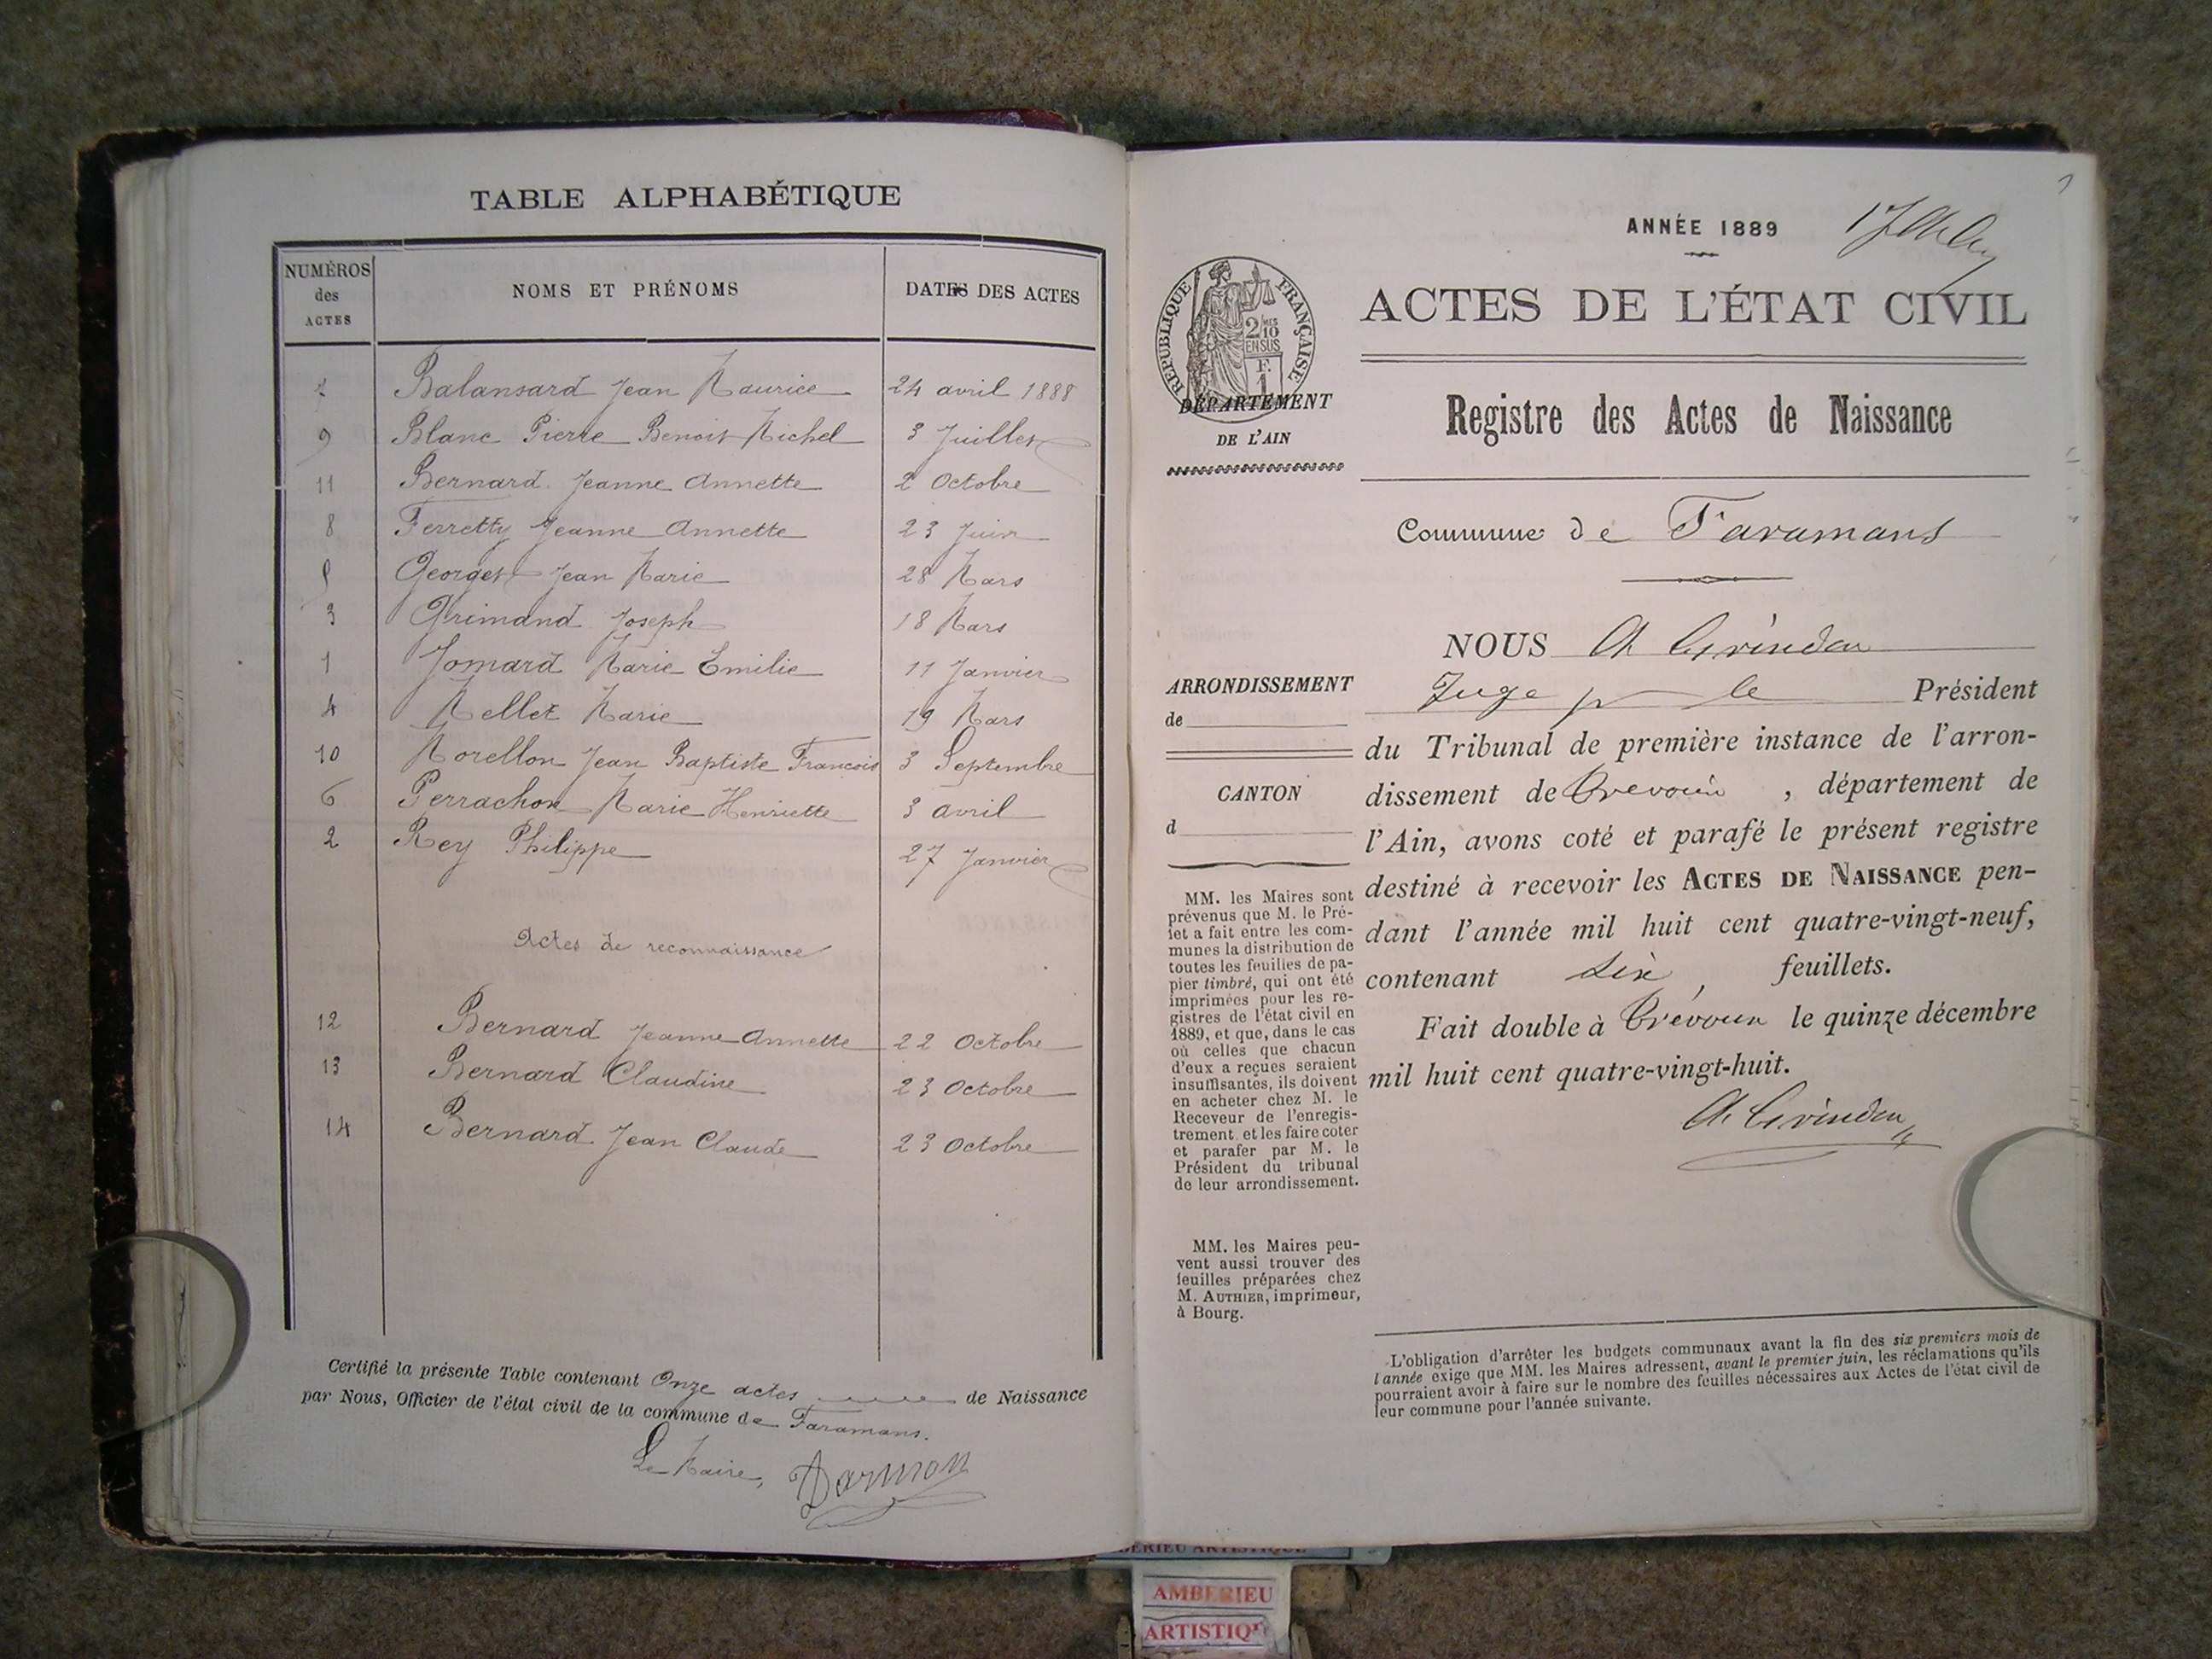 TABLE ALPHABÉTIQUE
NUMÉROS des ACTES
NOMS ET PRÉNOMS
DATES DES ACTES
7 Balansard Jean Maurice 24 avril 1888
9 Blanc Pierre Benoit Michel 3 Juillet
11 Bernard Jeanne Annette 2 Octobre
8 Ferretty Jeanne Annette 23 Juin
5 Georget Jean Marie 28 Mars
3 Grimand Joseph 18 Mars
1 Jomard Marie Emilie 11 Janvier
4 Mellet Marie 19 Mars
10 Morellon Jean Baptiste Francois 3 Septembre
6 Perrachon Marie Henriette 3 avril
2 Rey Philippe 27 Janvier
Actes de reconnaissance
12 Bernard Jeanne Annette 22 Octobre
13 Bernard Claudine 23 Octobre
14 Bernard Jean Claude 23 Octobre
Certifié la présente Table contenant Onze actes de Naissance
par Nous, Officier de l'état civil de la commune de Faramans.
Le Maire, Darmon
1
ANNÉE 1889
ACTES DE L'ÉTAT CIVIL
RÉPUBLIQUE FRANÇAISE
2/10 MES
EN SUS
F.
1
DÉPARTEMENT
DE L'AIN
Registre des Actes de Naissance
Commune de Faramans
NOUS
Juge pr le Président
du Tribunal de première instance de l'arron-
dissement de Trévoux, département de
l'Ain, avons coté et parafé le présent registre
destiné à recevoir les ACTES DE NAISSANCE pen-
dant l'année mil huit cent quatre-vingt-neuf,
contenant six, feuillets.
Fait double à Trévoux le quinze décembre
mil huit cent quatre-vingt-huit.
ARRONDISSEMENT
de
CANTON
d
MM. les Maires sont
prévenus que M. le Pré-
fet a fait entre les com-
munes la distribution de
toutes les feuilles de pa-
pier timbré, qui ont été
imprimées pour les re-
gistres de l'état civil en
1889, et que, dans le cas
où celles que chacun
d'eux a reçues seraient
insuffisantes, ils doivent
en acheter chez M. le
Receveur de l'enregis-
trement et les faire coter
et parafer par M. le
Président du tribunal
de leur arrondissement.
MM. les Maires peu-
vent aussi trouver des
feuilles préparées chez
M. AUTHIER, imprimeur,
à Bourg.
L'obligation d'arrêter les budgets communaux avant la fin des six premiers mois de
l'année exige que MM. les Maires adressent, avant le premier juin, les réclamations qu'ils
pourraient avoir à faire sur le nombre des feuilles nécessaires aux Actes de l'état civil de
leur commune pour l'année suivante.
AMBERIEU
ARTISTIQUE